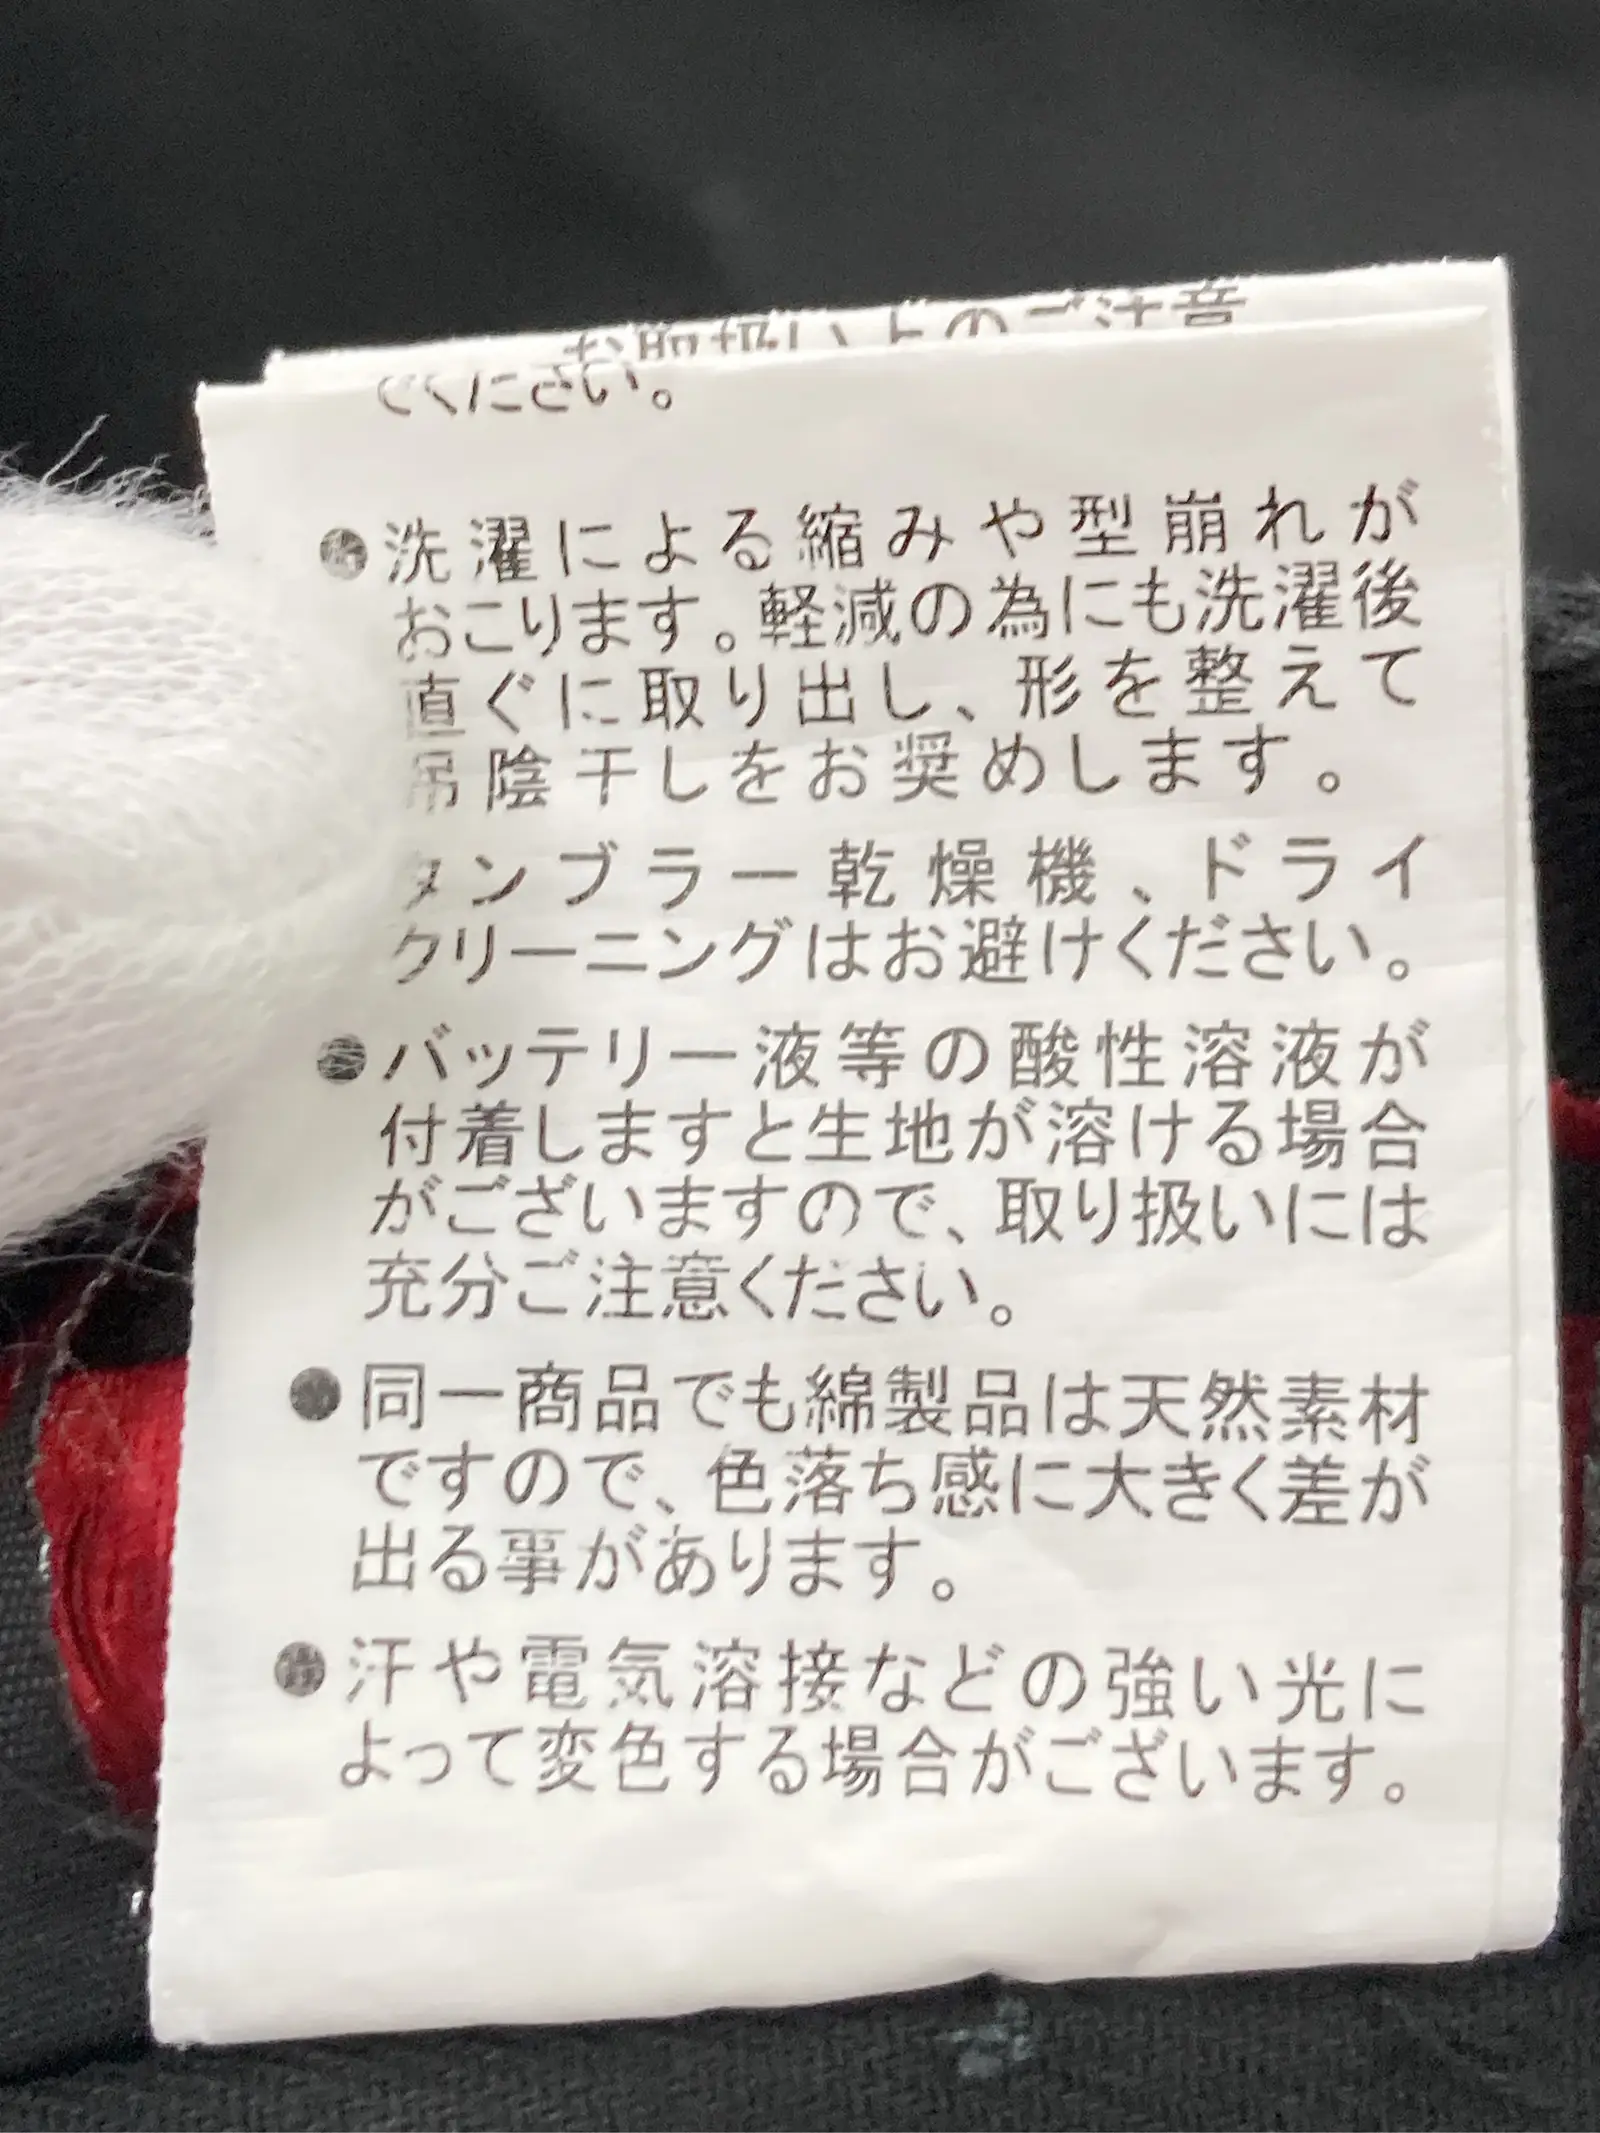 ください。
●洗濯による縮みや型崩れが
おこります。軽減の為にも洗濯後
直ぐに取り出し、形を整えて
吊陰干しをお奨めします。
タンブラー乾燥機、ドライ
クリーニングはお避けください。
●バッテリー液等の酸性溶液が
付着しますと生地が溶ける場合
がございますので、取り扱いには
充分ご注意ください。
●同一商品でも綿製品は天然素材
ですので、色落ち感に大きく差が
出る事があります。
●汗や電気溶接などの強い光に
よって変色する場合がございます。